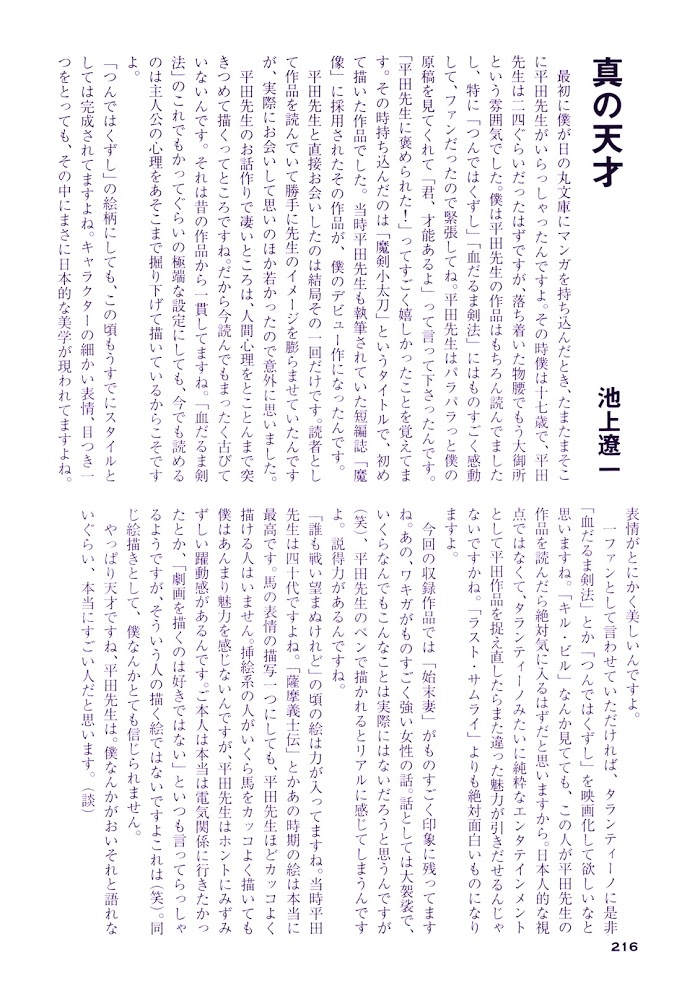 真の天才
池上遼一
最初に僕が日の丸文庫にマンガを持ち込んだとき、たまたまそこ
に平田先生がいらっしゃったんですよ。その時僕は十七歳で、平田
先生は二四ぐらいだったはずですが、落ち着いた物腰でもう大御所
という雰囲気でした。僕は平田先生の作品はもちろん読んでました
し、特に「つんではくずし」「血だるま剣法」にはものすごく感動
して、ファンだったので緊張してね。平田先生はパラパラっと僕の
原稿を見てくれて「君、才能あるよ」って言って下さったんです。
「平田先生に褒められた!」ってすごく嬉しかったことを覚えてま
す。その時持ち込んだのは「魔剣小太刀」というタイトルで、初め
て描いた作品でした。当時平田先生も執筆されていた短編誌「魔
像」に採用されたその作品が、僕のデビュー作になったんです。
平田先生と直接お会いしたのは結局その一回だけです。読者とし
て作品を読んでいて勝手に先生のイメージを膨らませていたんです
が、実際にお会いして思いのほか若かったので意外に思いました。
平田先生のお話作りで凄いところは、人間心理をとことんまで突
きつめて描くってところですね。だから今読んでもまったく古びて
いないんです。それは昔の作品から一貫してますね。「血だるま剣
法」のこれでもかってぐらいの極端な設定にしても、今でも読める
のは主人公の心理をあそこまで掘り下げて描いているからこそです
よ。
「つんではくずし」の絵柄にしても、この頃もうすでにスタイルと
しては完成されてますよね。キャラクターの細かい表情、目つき一
つをとっても、その中にまさに日本的な美学が現われてますよね。
表情がとにかく美しいんですよ。
一ファンとして言わせていただければ、タランティーノに是非
「血だるま剣法」とか「つんではくずし」を映画化して欲しいなと
思いますね。「キル・ビル」なんか見てても、この人が平田先生の
作品を読んだら絶対気に入るはずだと思いますから。日本人的な視
点ではなくて、タランティーノみたいに純粋なエンタテインメント
として平田作品を捉え直したらまた違った魅力が引きだせるんじゃ
ないですかね。「ラスト・サムライ」よりも絶対面白いものになり
ますよ。
今回の収録作品では「始末妻」がものすごく印象に残ってます
ね。あの、ワキガがものすごく強い女性の話。話としては大袈裟で、
いくらなんでもこんなことは実際にはないだろうと思うんですが
(笑)、平田先生のペンで描かれるとリアルに感じてしまうんです
よ。説得力があるんですね。
「誰も戦い望まぬけれど」の頃の絵は力が入ってますね。当時平田
先生は四十代ですよね。「薩摩義士伝」とかあの時期の絵は本当に
最高です。馬の表情の描写一つにしても、平田先生ほどカッコよく
描ける人はいません。挿絵系の人がいくら馬をカッコよく描いても
僕はあんまり魅力を感じないんですが、平田先生はホントにみずみ
ずしい躍動感があるんです。ご本人は本当は電気関係に行きたかっ
たとか、「劇画を描くのは好きではない」といつも言ってらっしゃ
るようですが、そういう人の描く絵ではないですよこれは(笑)。同
じ絵描きとして、僕なんかとても信じられません。
やっぱり天才ですね、平田先生は。僕なんかがおいそれと語れな
いぐらい、本当にすごい人だと思います。(談)
216